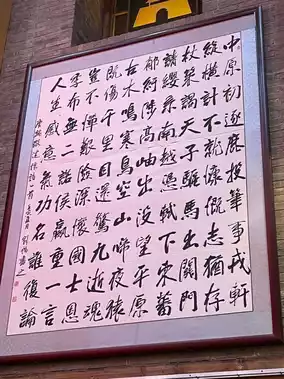 中原初逐鹿投筆事戎軒
縱橫計不就慷慨志猶存
杖策謁天子驅馬出關門
請纓系南越憑軾下東蕃
郁紆陟高岫出沒望平原
古木鳴寒鳥空山啼夜猿
既傷千里目還驚九逝魂
豈不憚艱險深懷國士恩
季布無二諾侯嬴重一言
人生感意氣功名誰復論